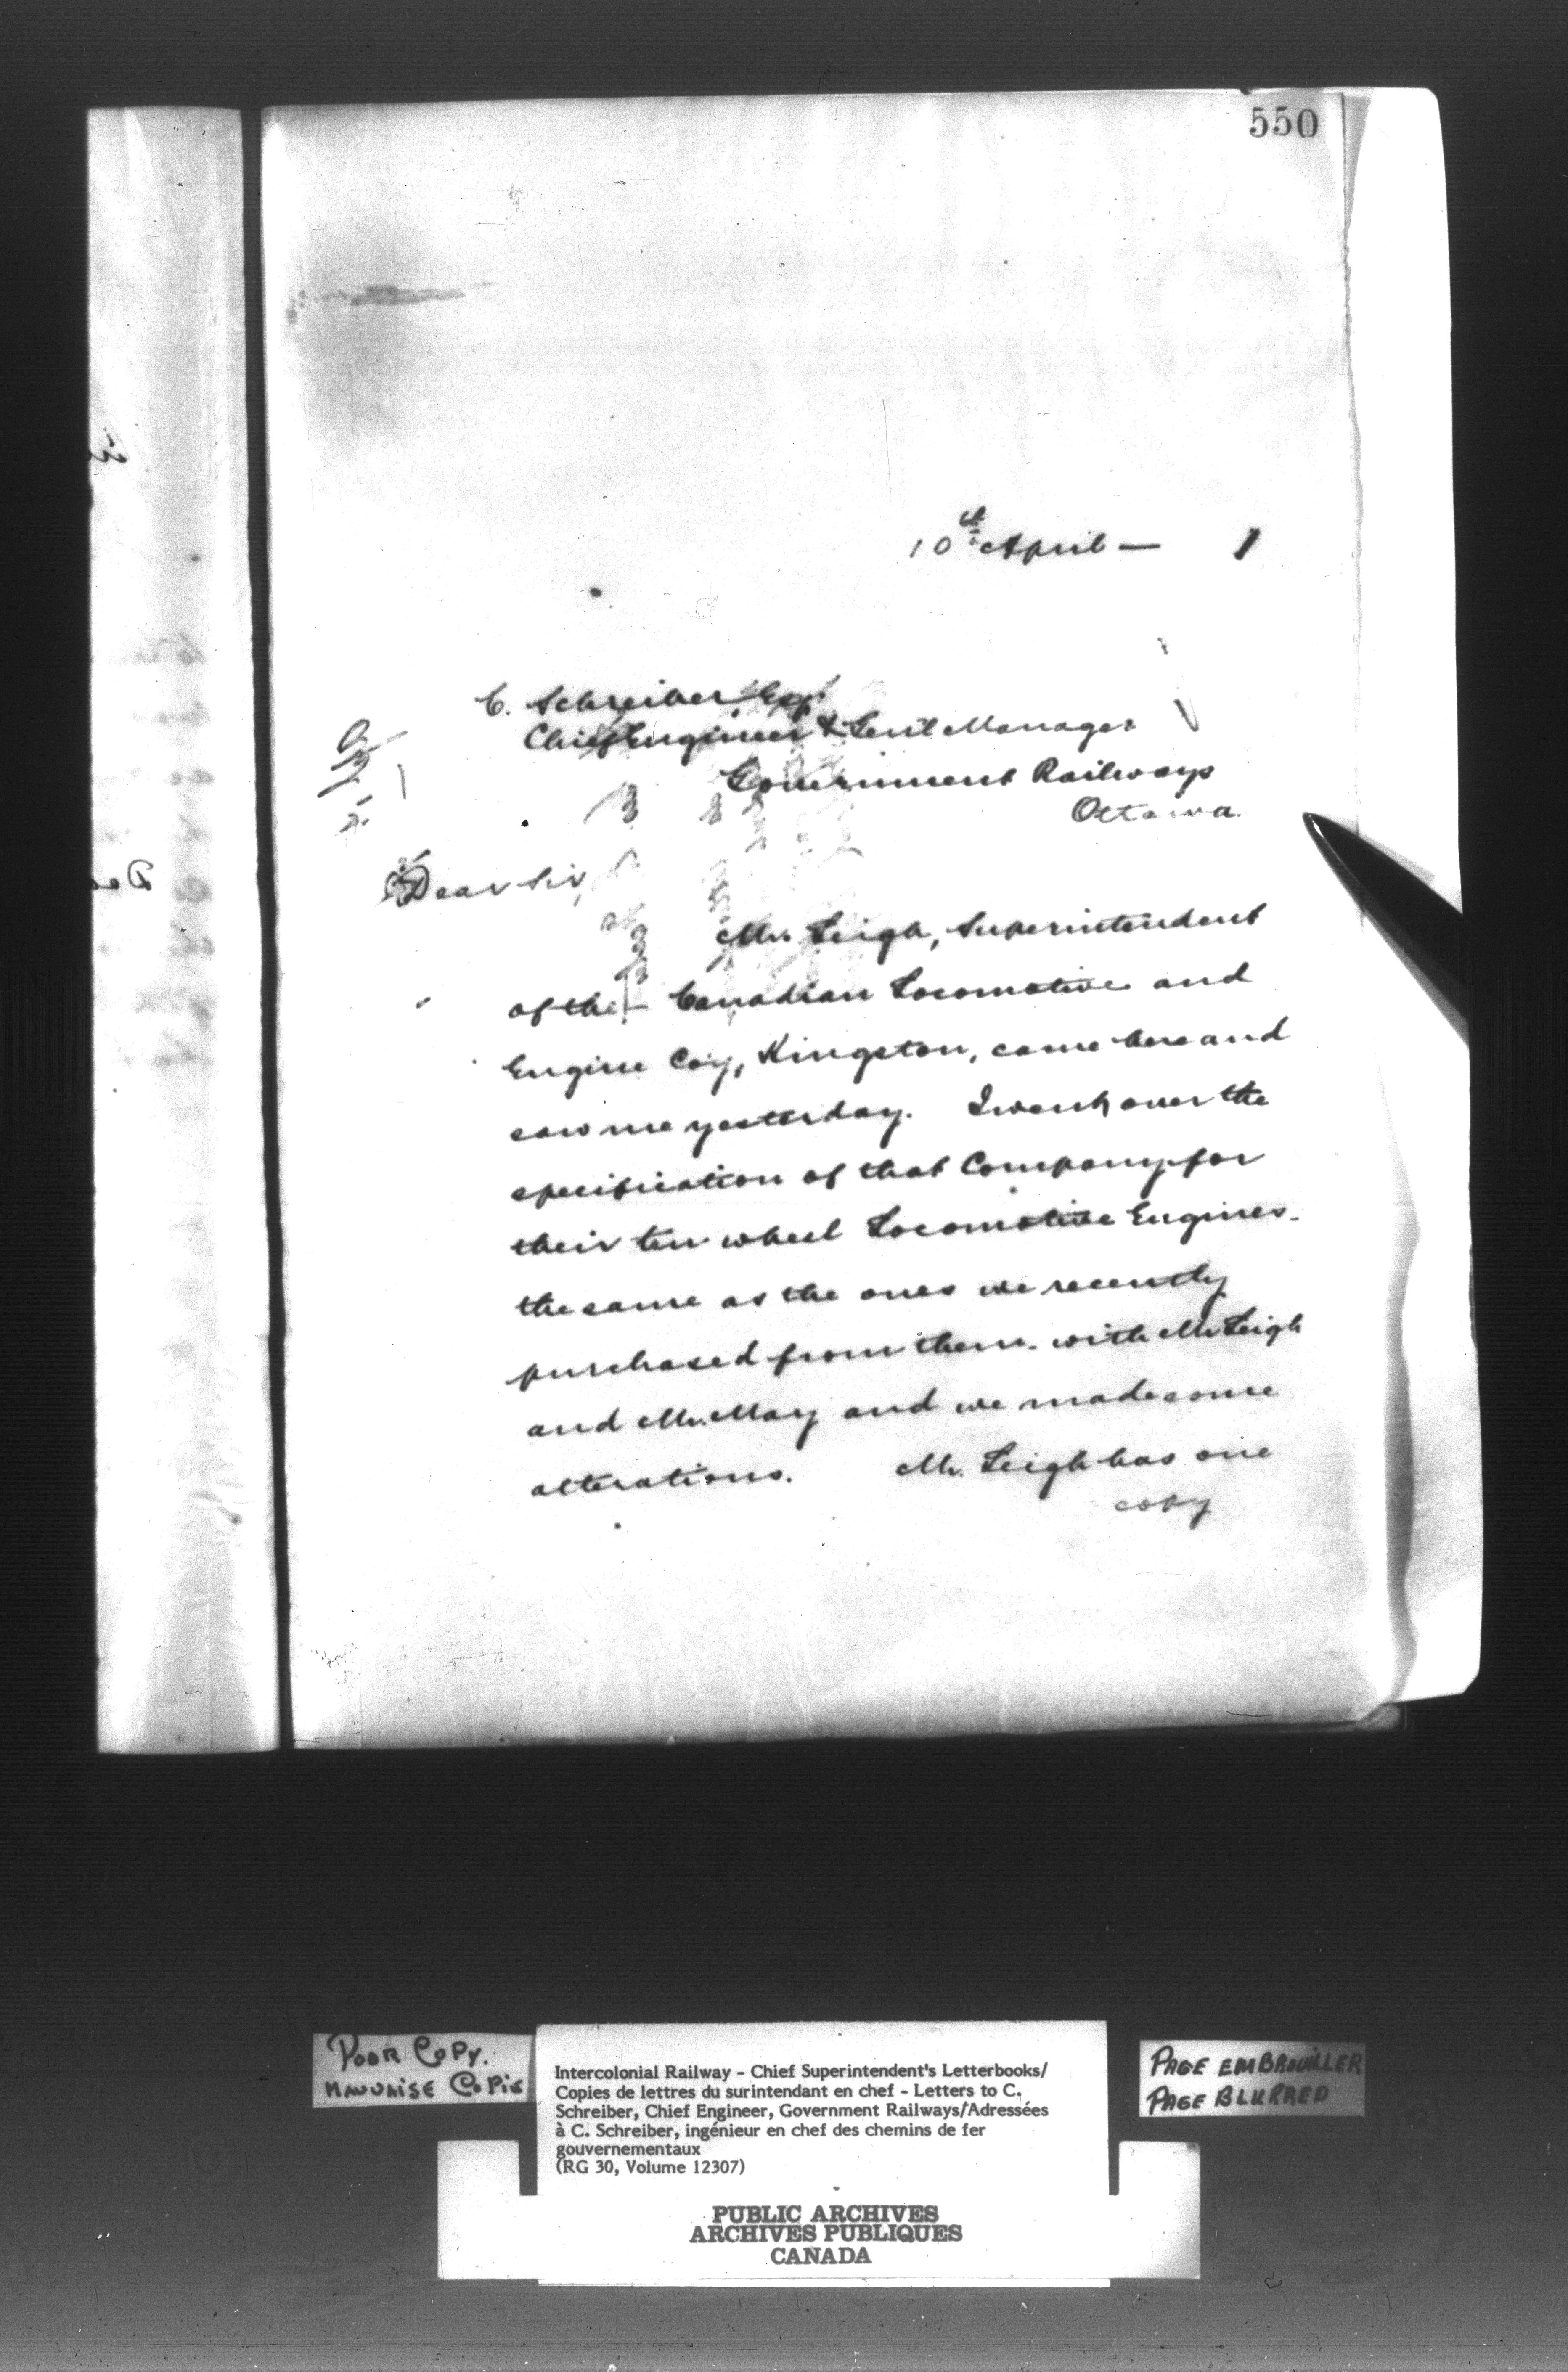 550
10th April — 1
C. Schreiber Esq.
Chief Engineer & Genl Manager
Government Railways
Ottawa
Dear Sir,
Mr. Leigh, Superintendent
of the Canadian Locomotive and
Engine Coy, Kingston, came here and
saw me yesterday. I went over the
specification of that Company for
their ten wheel Locomotive Engines -
the same as the ones we recently
purchased from them - with Mr Leigh
and Mr. May and we made some
alterations. Mr. Leigh has one
copy
POOR COPY.
MAUVAISE COPIE
Intercolonial Railway - Chief Superintendent's Letterbooks/
Copies de lettres du surintendant en chef - Letters to C.
Schreiber, Chief Engineer, Government Railways/Adressées
à C. Schreiber, ingénieur en chef des chemins de fer
gouvernementaux
(RG 30, Volume 12307)
PAGE EMBROUILLER
PAGE BLURRED
PUBLIC ARCHIVES
ARCHIVES PUBLIQUES
CANADA